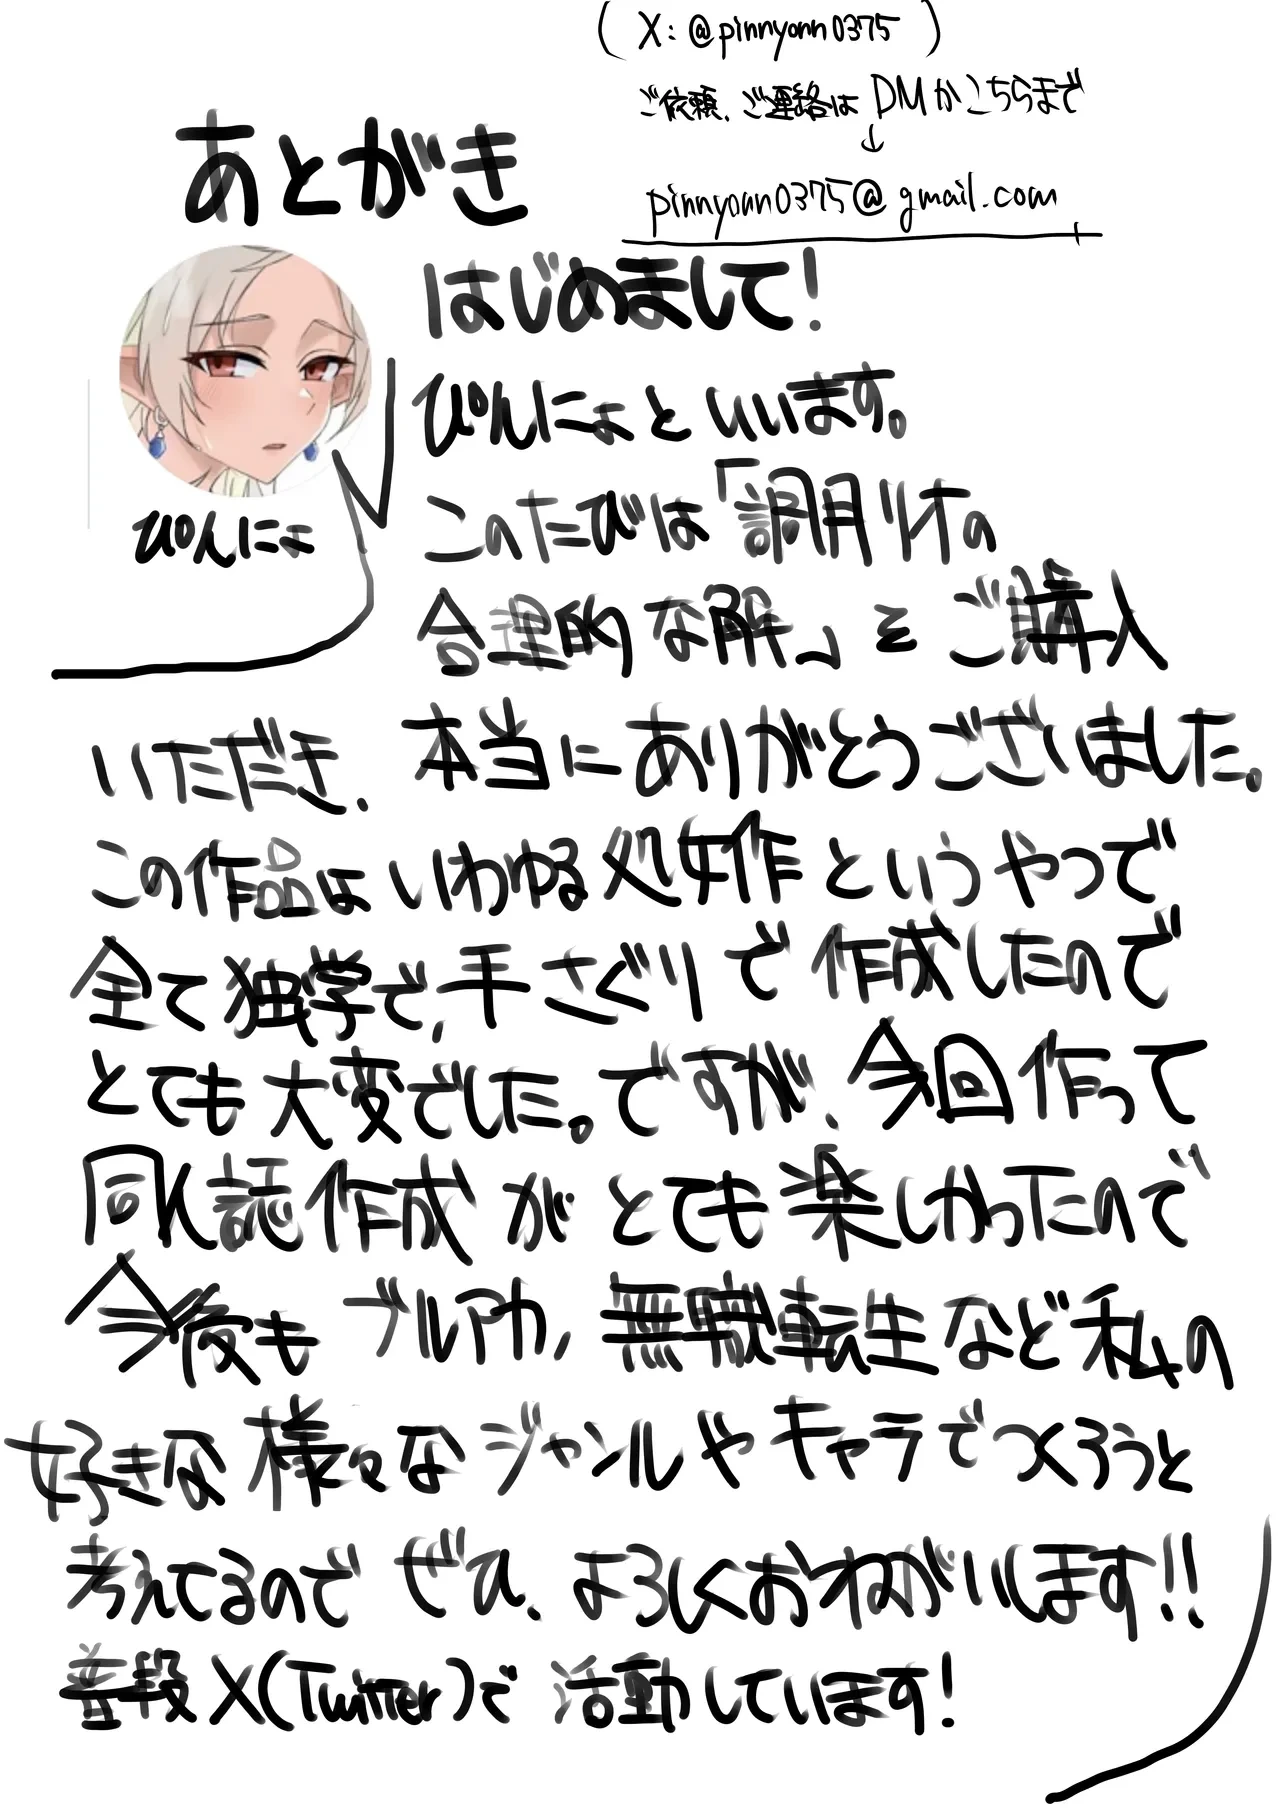 (X:@pinnyonn0375)
ご依頼、ご連絡はDMかこちらまで
↓
pinnyonn0375@gmail.com
あとがき
ぴんにょ
はじめまして!
ぴんにょといいます。
このたびは「調月リオの
合理的な解」をご購入
いただき、本当にありがとうございました。
この作品はいわゆる処女作というやつで
全て独学で、手さぐりで作成したので
とても大変でした。ですが、今回作って
同人誌作成がとても楽しかったので
今後もブルアカ,無職転生など私の
好きな様々なジャンルやキャラでつくろうと
考えてるのでぜひ、よろしくおねがいします!!
普段X(Twitter)で活動しています!